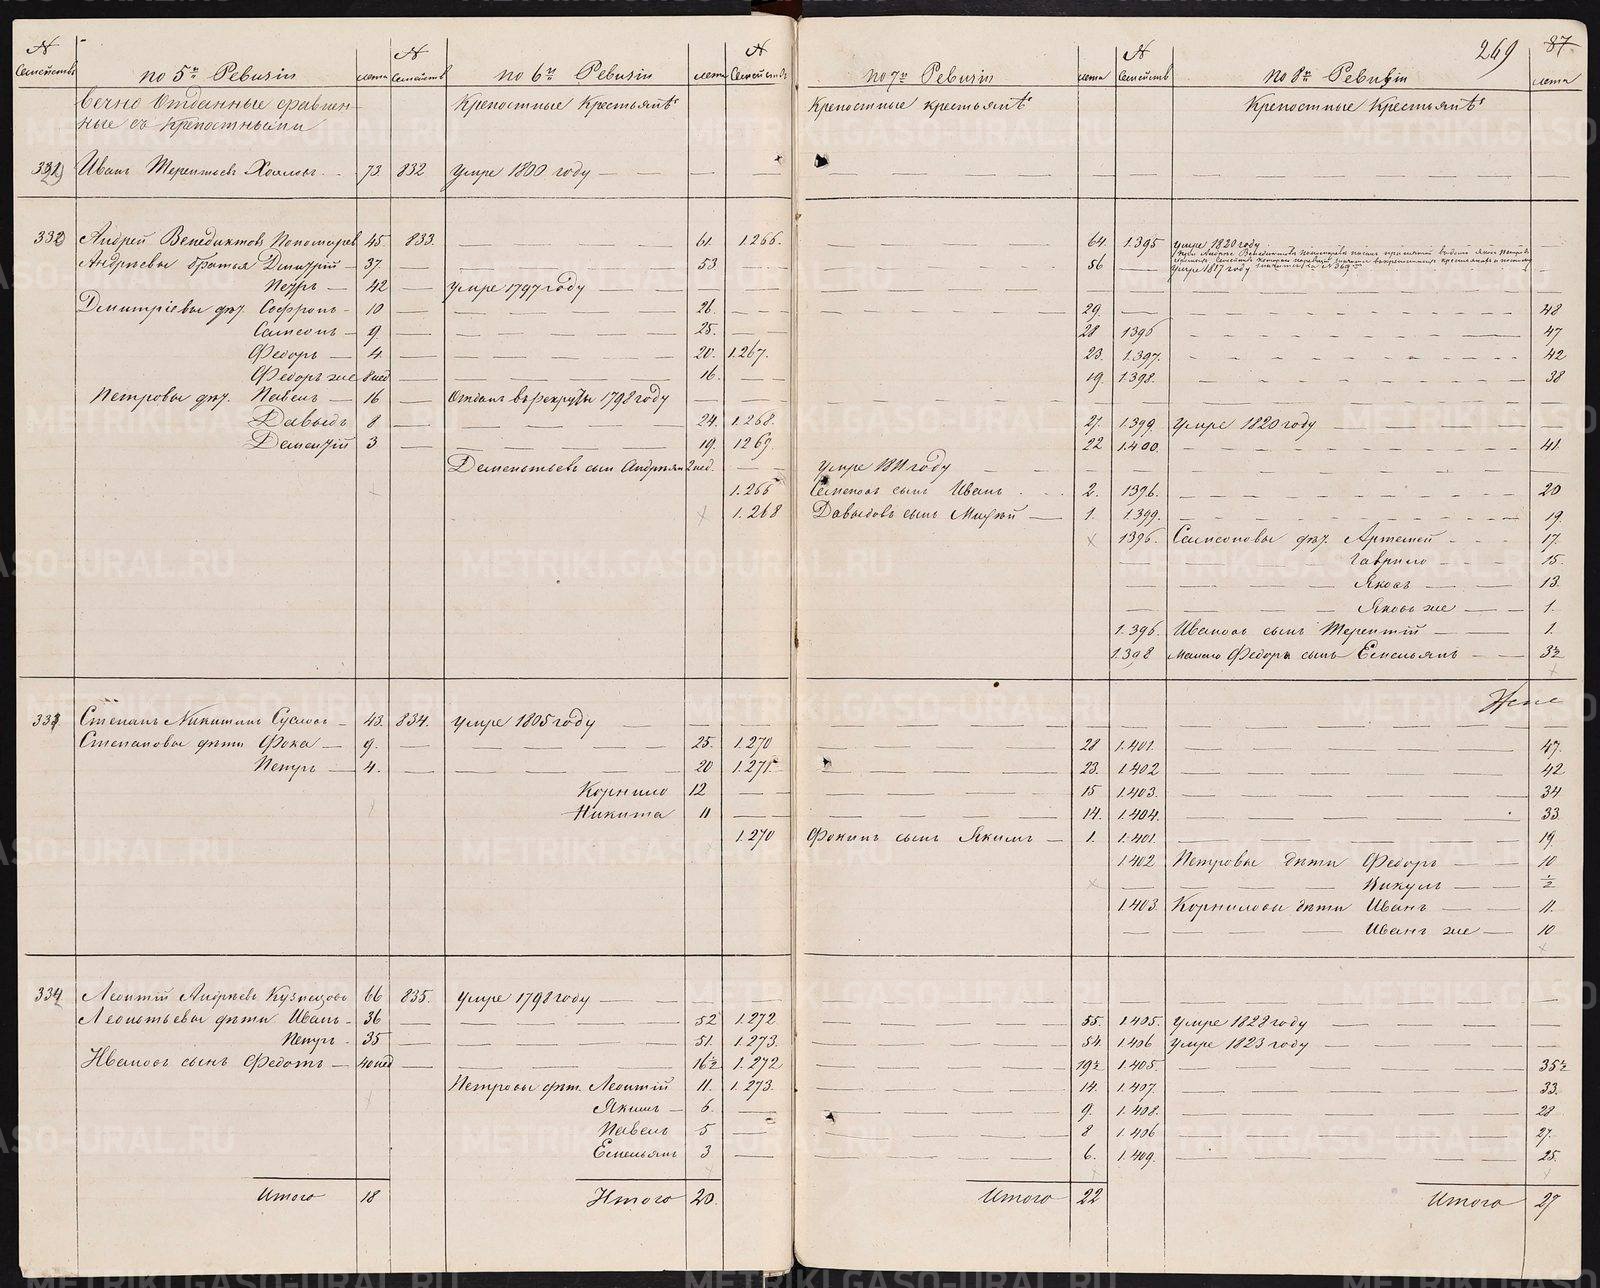 269 87
№ Семействъ по 5й Ревизiи лета № Семейств по 6й Ревизiи лета № Семейства по 7й Ревизiи лета № Семейств по 8й Ревизiи лета
Вечно Отданные сравнен- Крепостные Крестьянѣ Крепостные крестьянѣ Крепостные Крестьянѣ
ные съ крепостными
Иванъ Терентьевъ 73 832 умре 1800 году
Андрей Венедиктовъ Пономаревъ 45. 833. 61. 1.266. 64. 1.395 умре 1820 году
Андреевы братья Дмитрiй 37. 53. 56 умре 1817 году
Петръ 42 умре 1797 году
Дмитрiевы дѣт. Софронъ 10 26. 29. 48
Самсонъ 9 25. 28 1396 47
Федоръ 4 20. 1.267. 23. 1.397. 42
Федоръ же 8 нед 16. 19. 1.398. 38
Петровы дѣт. Павелъ 16 Отданъ въ рекруты 1798 году
Давыдъ 8 24. 1.268. 27. 1.399. умре 1820 году
Дементiй 3 19. 1269. 22 1.400. 41.
Дементьевъ сын Андреян 2 нед. умре 1811 году
1.266 сынъ Иванъ 2. 1396. 20
1.268 Давыдовъ сынъ 1. 1.399. 19.
1396. Самсоновы дѣт. Артемей 17.
Гаврило 15.
Яковъ 13.
Яковъ же 1.
1.396. Ивановъ сынъ Терентiй 1.
1.398 Малаго Федора сынъ Емельянъ 3½
Степанъ Никитинъ Сусловъ 43. 834. умре 1805 году
Степановы дѣти Фока 9. 25. 1.270 28 1.401. 47.
Петръ 4. 20 1.271. 23. 1.402 42
Корнило 12 15 1.403. 34
Никита 11 14. 1.404. 33.
1.270 Фокинъ сынъ Якимъ 1. 1.401. 19.
1.402 Петровы дѣти Федоръ 10
Викулъ ½
1.403. Корниловы дѣти Иванъ 11.
Иванъ же 10
334 Леонтiй Андреевъ Кузнецовъ 66 835. умре 1798 году
Леонтьевы дѣти Иванъ 36 52 1.272 55. 1.405. умре 1828 году
Петръ 35 51. 1.273. 54. 1.406 умре 1823 году
Ивановъ сынъ Федотъ 40 нед 16½ 1.272 19½ 1.405. 35½
Петровы дѣт. Леонтiй 11. 1.273. 14. 1.407. 33.
Якимъ 6. 9. 1.408. 28
Павелъ 5 8 1.406 27.
Емельянъ 3 6. 1.409. 25.
Итого 18 Итого 20. Итого 22 Итого 27
METRIKI.GASO-URAL.RU